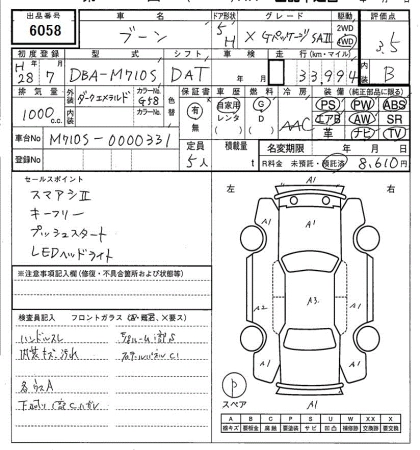 出品番号
6058
車名
ブーン
ドア形状
5
H
グレード
X GパッケージSAⅡ
駆動
2WD
4WD
評価点
3.5
初度登録
H 28 年 7 月
型式
DBA-M710S
シフト
DAT
車検
年 月
走行(km・マイル)
33,994
内装
B
排気量
1000 c.c.
外装
ダークエメラルド
カラーNo.
G58
内装
色替
カラーNo.
保証書
有
無
車歴
自家用
レンタ
燃料
G
D
冷房
AAC
装備(純正部品に限る)
PS PW ABS
エアB AW SR
革 ナビ TV
車台No
M710S-0000331
登録No
定員
5人
積載量
t
名変期限
年 月 日
R料金 未預託・預託済 8,610円
セールスポイント
スマアシⅡ
キーフリー
プッシュスタート
LEDヘッドライト
※注意事項記入欄(修復・不具合箇所および状態等)
検査員記入
フロントガラス
ハンドルスレ
内装キズ、汚れ
各ウスA
左
右
A1
A1
A1
A1
A2
A3
A1
A1
P
スペア
A1
A B C P S U W XX X
線キズ 要板金 腐触 要塗装 サビ 凹凸 補修跡 交換跡 要交換